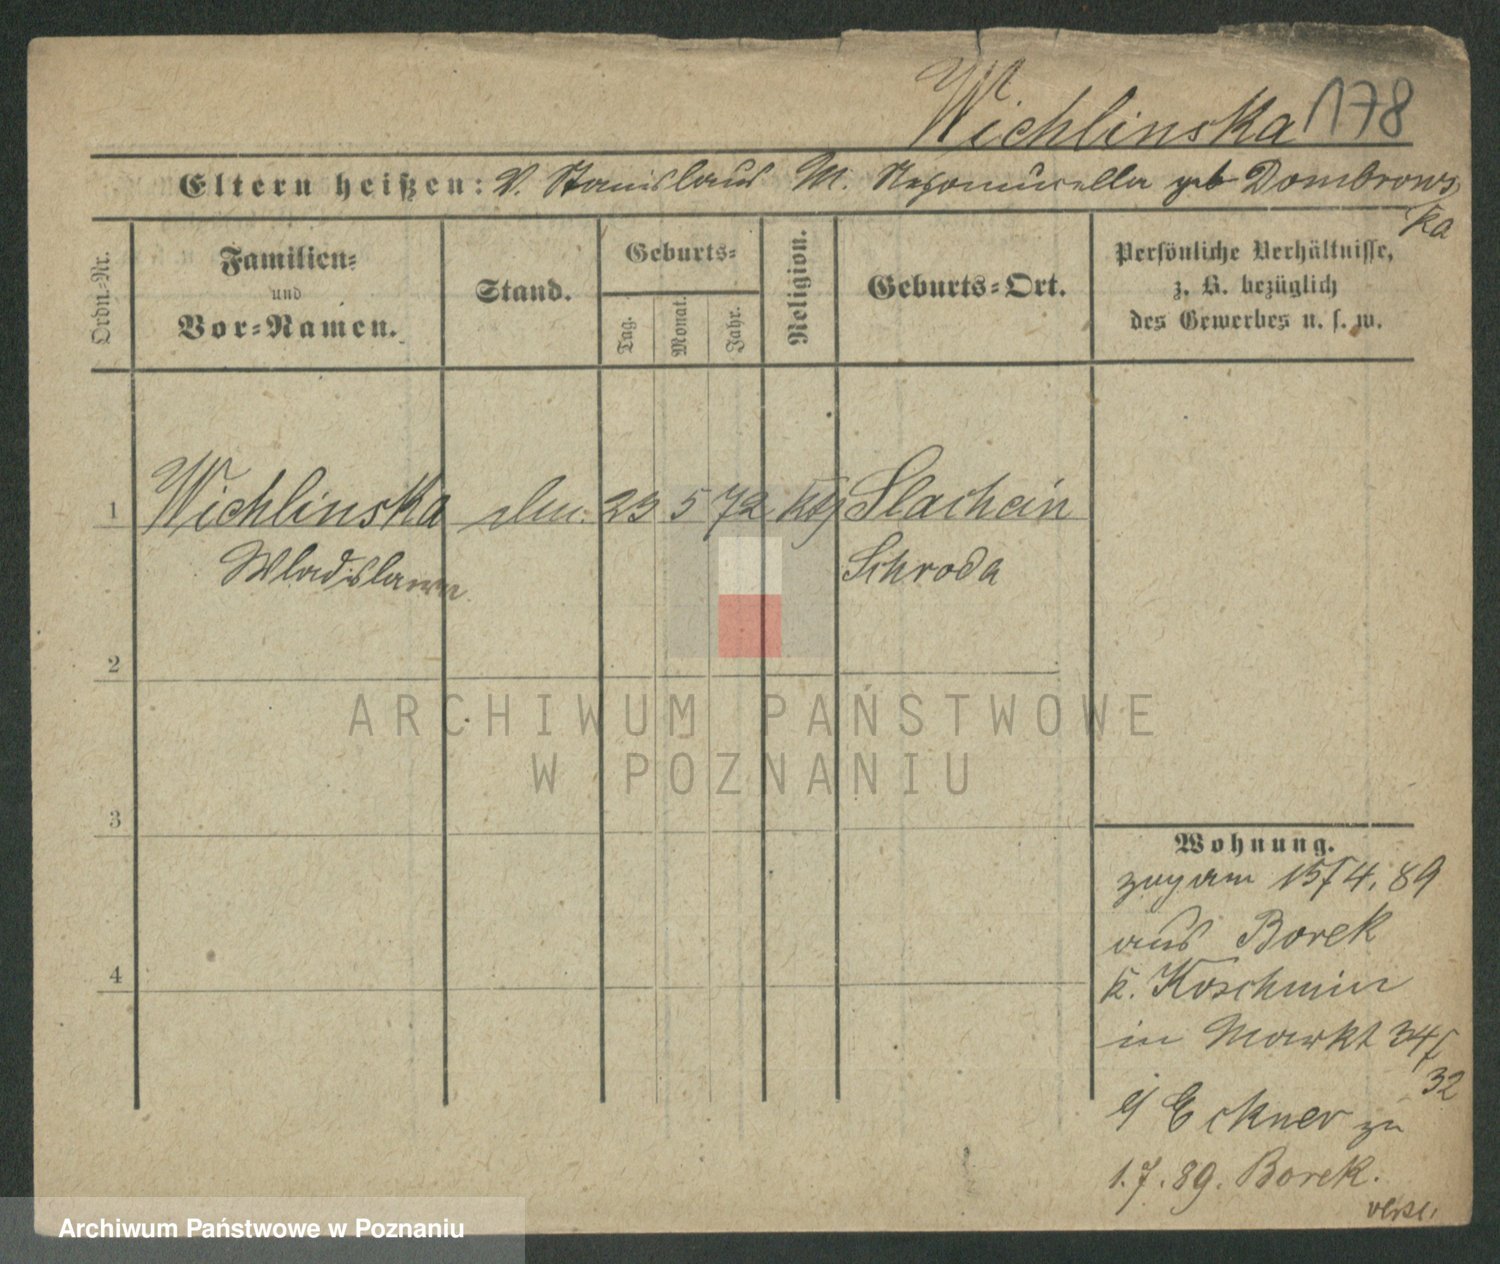 Wichlinska 178
Eltern heißen: V. Stanislaus M. geb Dombrows
ka
Ordn.-Nr.
Familien-
und
Vor-Namen.
Stand.
Geburts-
Tag.
Monat.
Jahr.
Religion.
Geburts-Ort.
Persönliche Verhältnisse,
z. B. bezüglich
des Gewerbes u. s. w.
1 Wichlinska 23 5 72 Ktg Slachcin
Wladislawa Schroda
2
ARCHIWUM PAŃSTWOWE
W POZNANIU
3
4
Wohnung.
zog am 15/4. 89
aus Borek
K. Koschmin
in Markt 34/
32
Eckner zu
1.7.89. Borek.
Archiwum Państwowe w Poznaniu